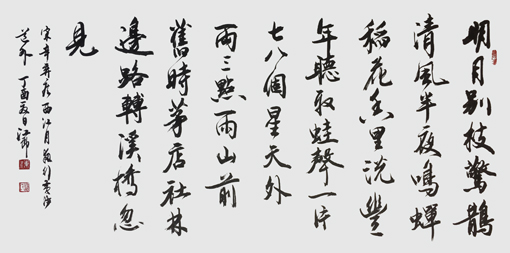 明月别枝驚鵲
清風半夜鳴蟬
稻花香里说豐
年聽取蛙聲一片
七八個星天外
兩三點雨山前
舊時茅店社林
邊路轉溪橋忽
見
宋辛弃疾西江月夜行黄沙
道中丁酉夏日